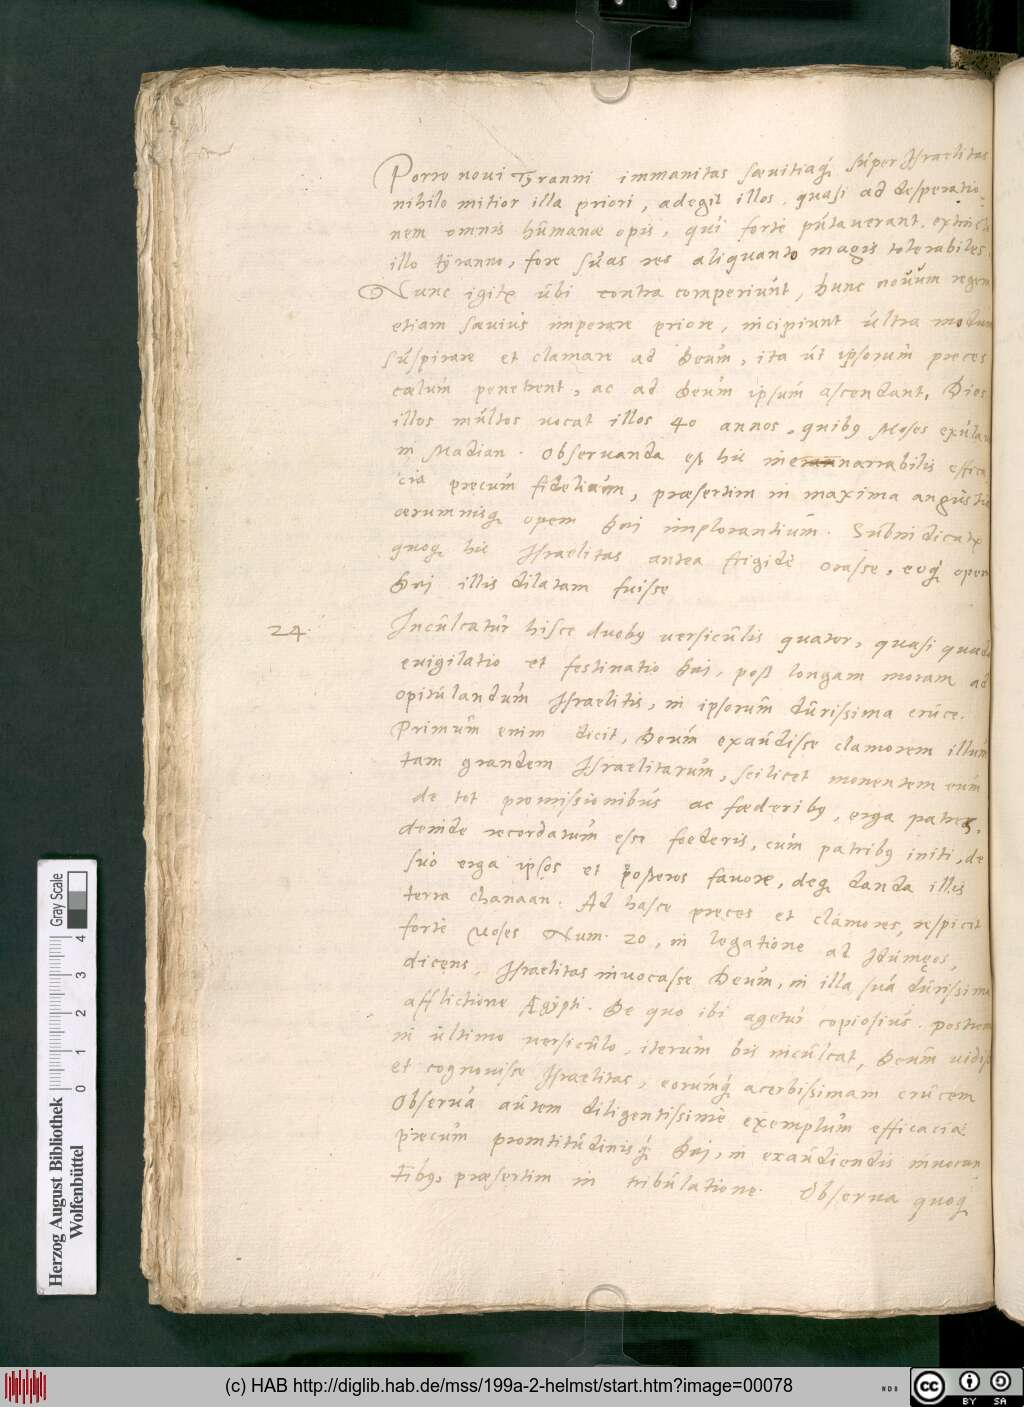 Porro novi Tyranni immanitas sævitiaq́ súper Israelitas
nihilo mitior illa priori, adegit illos, quasi ad desperatio
nem omnis húmanæ opis, qui fortè pútaverant, extincto
illo tÿranno, fore súas res aliquanto magis tolerabiles.
Nunc igitr úbi contra comperiúnt, hunc novúm regem
etiam sævius imperare priore, incipiunt últra modum
súspirare et clamare ad Deúm, ita út ipsorúm preces
cœlúm penetrent, ac ad Deúm ipsúm ascendant. Dies
illos múltos vocat illos 40 annos, quibq Moses exúlavit
in Madian. Observanda est hic inenarrabilis effica
cia precúm fideliúm, præsertim in maxima angústia
ærumnisq́ opem Dei implorantiúm. Subindicatr
quoq́ hic Israelitas antea frigidè orasse, eoq́ opem
Dei illis dilatam fuisse
24. Incúlcatúr hisce duobq versicúlis quater, quasi quædam
evigilatio et festinatio Dei, post longam moram ad
opitúlandúm Israelitis, in ipsorúm dúrissima crúce.
Primúm enim dicit, Deúm exaúdisse clamorem illúm
tam grandem Israelitarúm, scilicet monentem eúm
de tot promissionibús ac fœderibq, erga patres,
deinde recordatúm esse foederis, cúm patribq initi, de
súo erga ipsos et posteros favore, deq́ danda illis
terra Chanaan. Ad hasce preces et clamores, respicit
fortè Moses Num. 20, in legatione ad Idúmęos,
dicens, Israelitas invocasse Deúm, in illa súa dúrissima
afflictione Ægÿpti. De quo ibi agetúr copiosiús. Postremò
in último versicúlo, iterúm bis incúlcat, Deúm vidisse
et cognovisse Israelitas, eorúmq́ acerbissimam crúcem
Observa aútem diligentissimè exemplúm efficaciæ
precúm promtitúdinisq́ Dei, in exaúdiendis invocan
tibq, præsertim in tribúlatione. Observa quoq́
Herzog August Bibliothek
Wolfenbüttel
0 1 2 3 4
Gray Scale
(c) HAB http://diglib.hab.de/mss/199a-2-helmst/start.htm?image=00078
cc BY SA